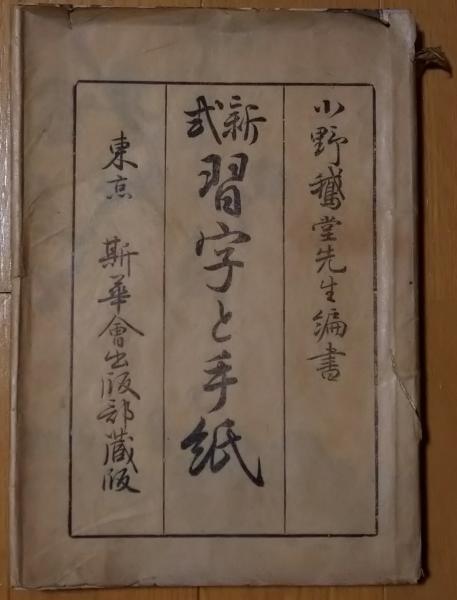 小野鵞堂先生編書
新式習字と手紙
東京 斯華會出版部蔵版